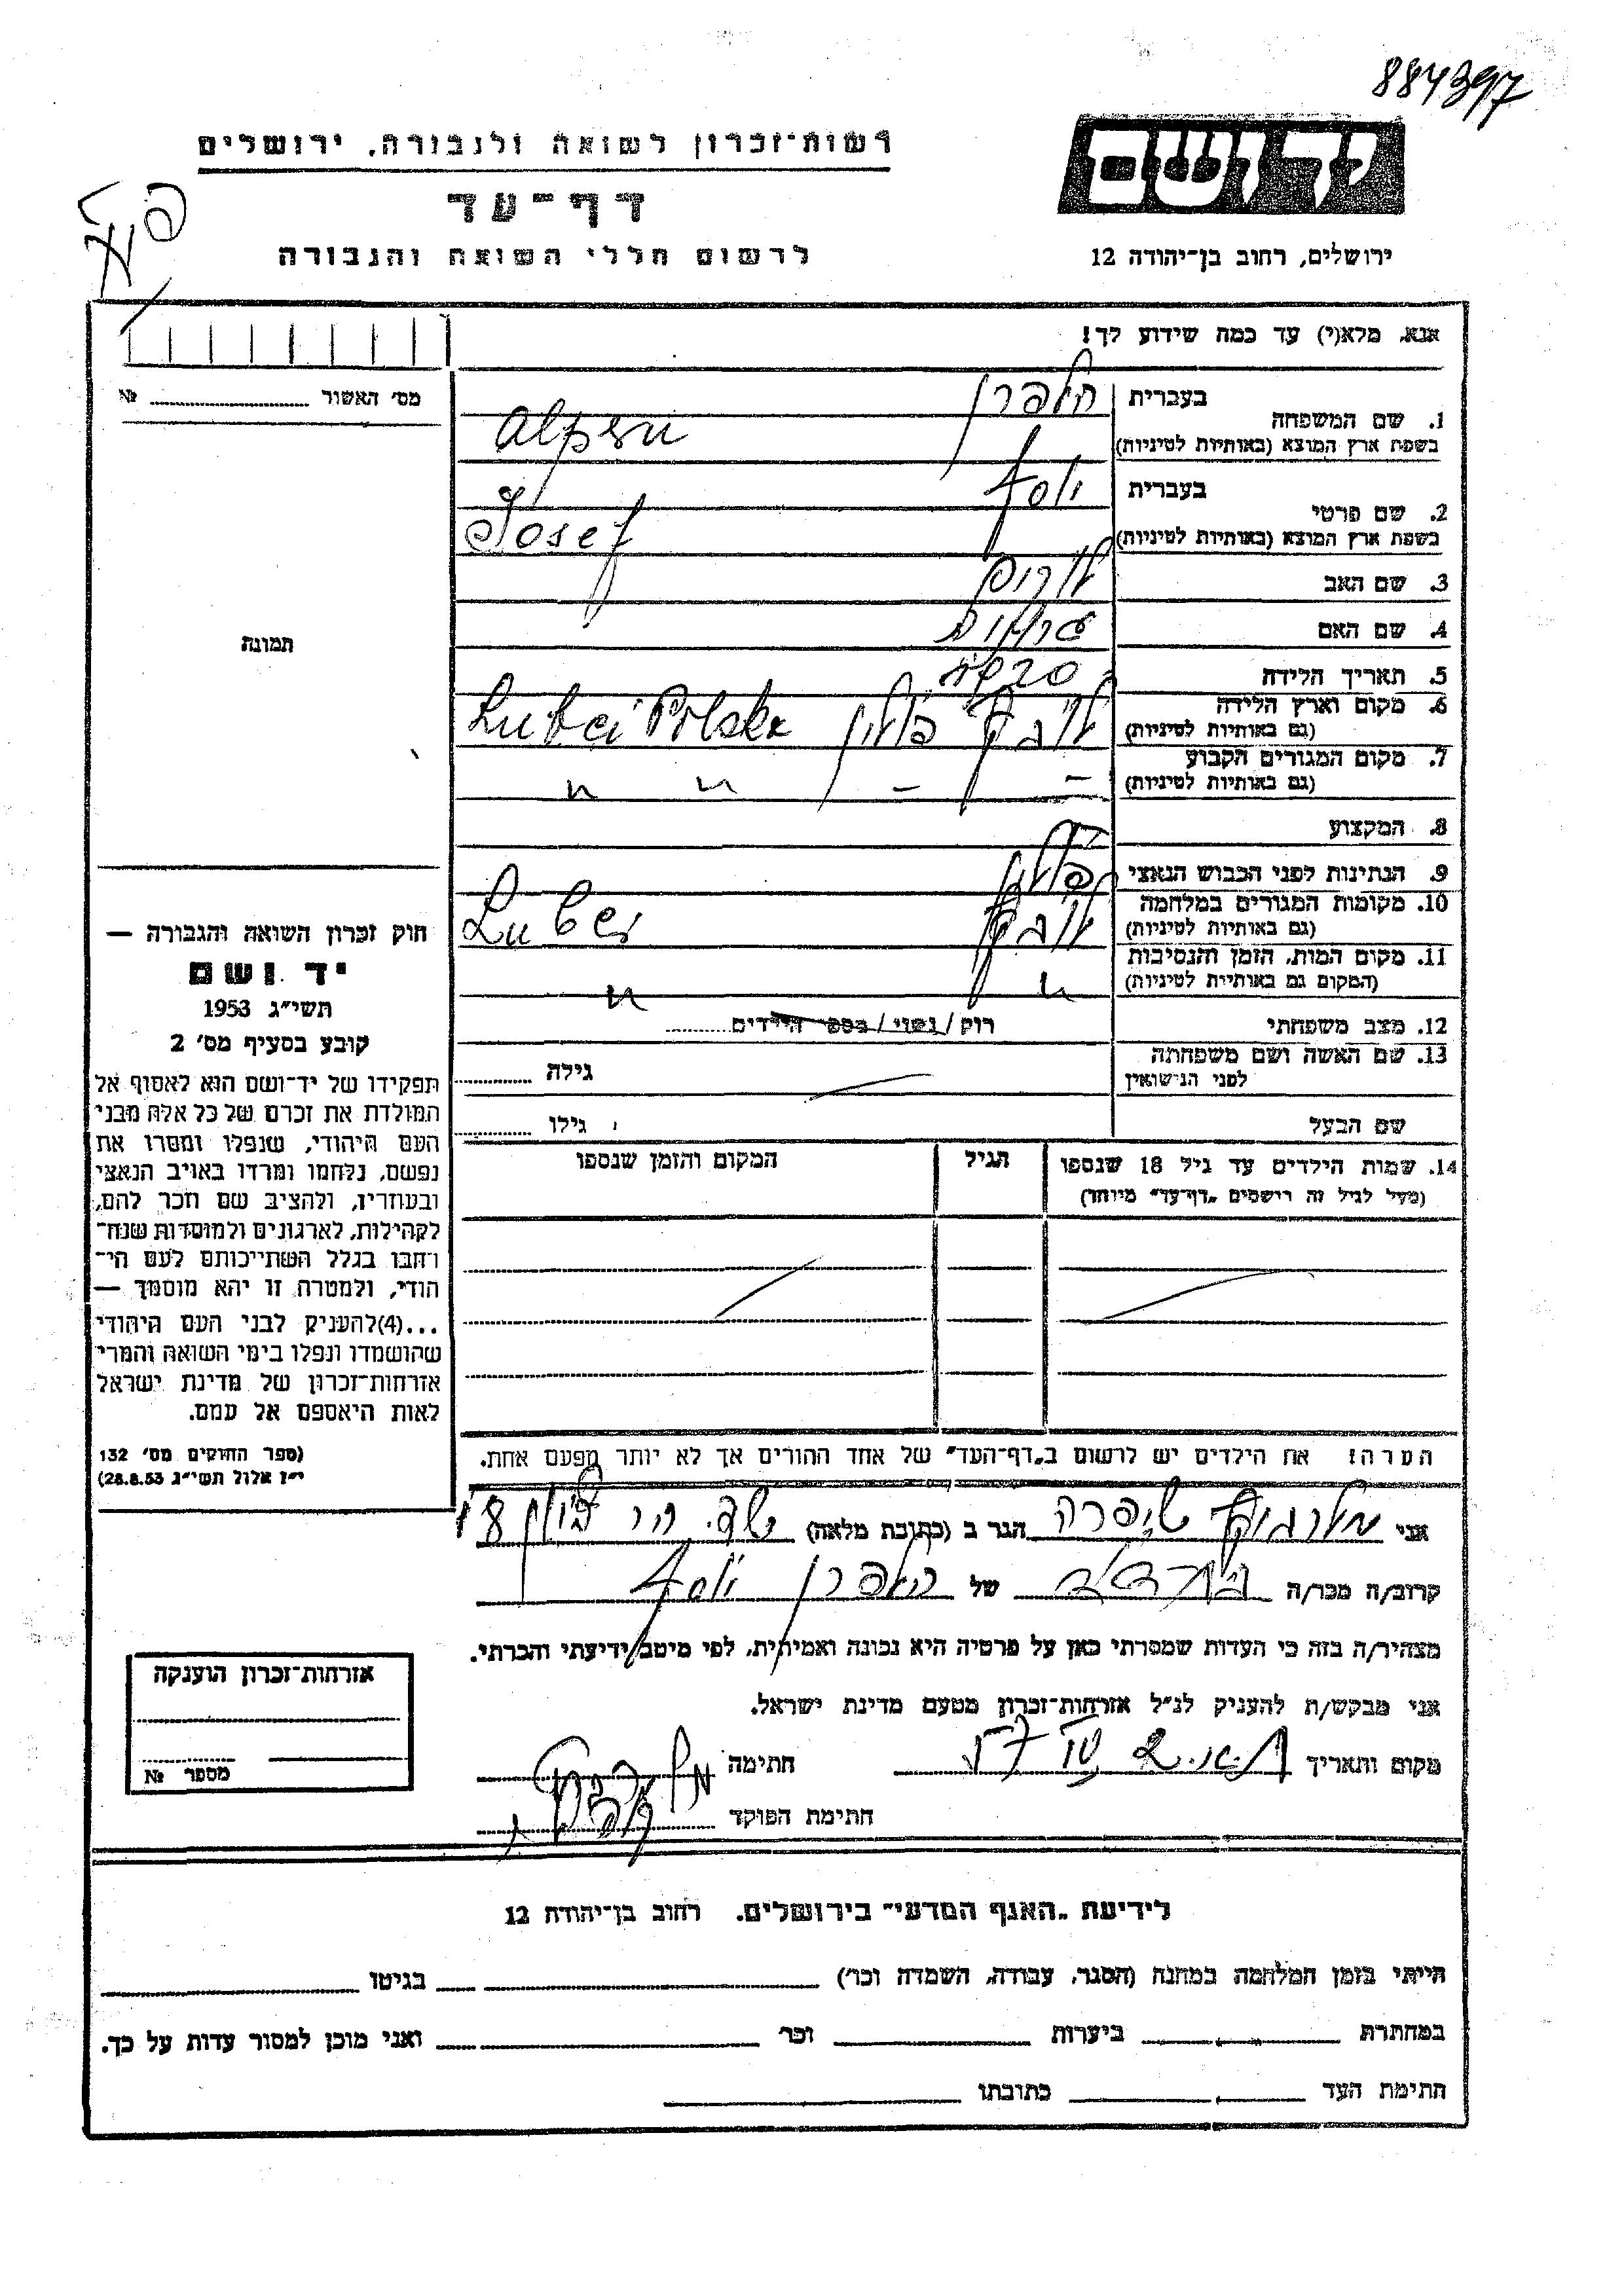 884397
יד ושם
רשות־זכרון לשואה ולגבורה, ירושלים
דף־עד
ירושלים, רחוב בן־יהודה 12
לרשום חללי השואה והגבורה
אנא, מלא(י) עד כמה שידוע לך!
מס׳ האשור № 
1. שם המשפחה
בעברית הלפרן
בשפת ארץ המוצא (באותיות לטיניות) Alpern
2. שם פרטי
בעברית יוסף
בשפת ארץ המוצא (באותיות לטיניות) Josef
3. שם האב
4. שם האם
5. תאריך הלידה
6. מקום וארץ הלידה
(גם באותיות לטיניות) פולין Polska
7. מקום המגורים הקבוע
(גם באותיות לטיניות) - - " "
8. המקצוע
9. הנתינות לפני הכבוש הנאצי
10. מקומות המגורים במלחמה
(גם באותיות לטיניות)
11. מקום המות, הזמן והנסיבות
(המקום גם באותיות לטיניות) " "
12. מצב משפחתי רוק/נשוי/מספר הילדים
13. שם האשה ושם משפחתה
לפני הנישואין גילה
שם הבעל גילו
14. שמות הילדים עד גיל 18 שנספו
(מעל לגיל זה רישמים „דף־עד״ מיוחד)
הגיל
המקום והזמן שנספו
הערה: את הילדים יש לרשום ב„דף־העד״ של אחד ההורים אך לא יותר מפעם אחת.
תמונה
חוק זכרון השואה והגבורה —
יד ושם
תשי״ג 1953
קובע בסעיף מס׳ 2
תפקידו של יד־ושם הוא לאסוף אל
המולדת את זכרם של כל אלה מבני
העם היהודי, שנפלו ומסרו את
נפשם, נלחמו ומרדו באויב הנאצי
ובעוזריו, ולהציב שם וזכר להם,
לקהילות, לארגונים ולמוסדות שנח־
רחבו בגלל השתייכותם לעם הי־
הודי, ולמטרה זו יהא מוסמך —
...(4)להעניק לבני העם היהודי
שהושמדו ונפלו בימי השואה והמרי
אזרחות־זכרון של מדינת ישראל
לאות היאספם אל עמם.
(ספר החוקים מס׳ 132
י״ז אלול תשי״ג 28.8.53)
אני שיפרה הגר ב (כתובת מלאה)
קרוב/ה מכר/ה של הלפרן יוסף
מצהיר/ה בזה כי העדות שמסרתי כאן על פרטיה היא נכונה ואמיתית, לפי מיטב ידיעתי והכרתי.
אני מבקש/ת להעניק לנ״ל אזרחות־זכרון מטעם מדינת ישראל.
מקום ותאריך חתימה
חתימת הפוקד
אזרחות־זכרון הוענקה
מספר №
לידיעת „האגף המדעי״ בירושלים. רחוב בן־יהודה 12
הייתי בזמן המלחמה במחנה (הסגר, עבודה, השמדה וכו׳) בגיטו
במחתרת ביערות וכו׳ ואני מוכן למסור עדות על כך.
חתימת העד כתובתו